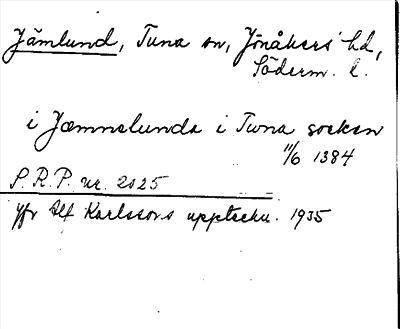 Jämlund, Tuna sn, Jönåkers hd,
Söderm. l.
i Jæmnalunda i Twna soeken
11/6 1384
S.R.P. nr. 2025
Jfr Alf Karlssons uppteckn. 1935